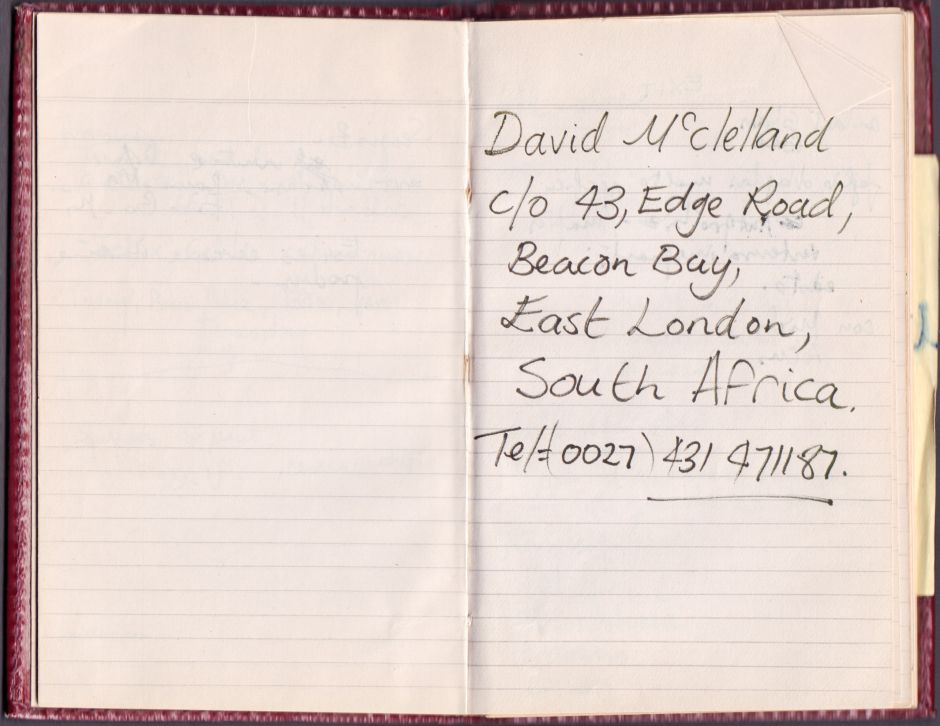 David McClelland
c/o 43, Edge Road,
Beacon Bay,
East London,
South Africa.
Tel:(0027) 431 471187.